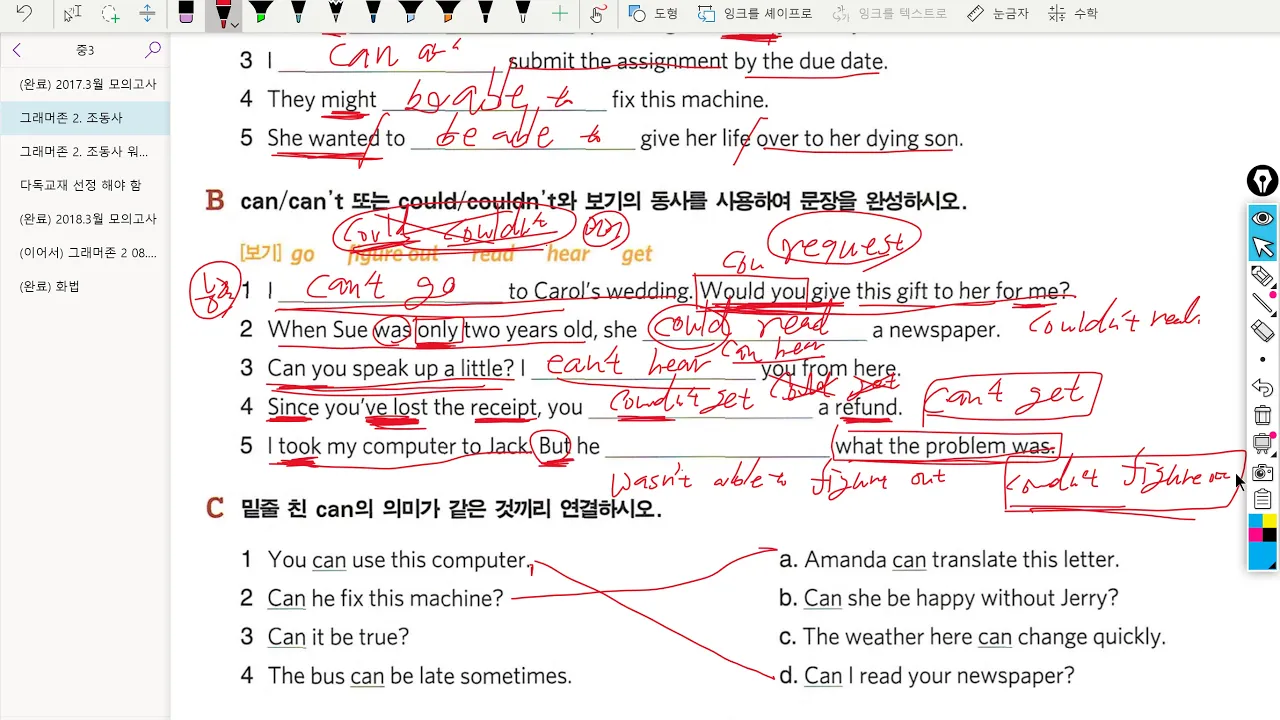 도형 잉크를 셰이프로 잉크를 텍스트로 눈금자 수학
중3
(완료) 2017.3월 모의고사
그래머존 2. 조동사
그래머존 2. 조동사 워...
다독교재 선정 해야 함
(완료) 2018.3월 모의고사
(이어서) 그래머존 2 08....
(완료) 화법
3 I can submit the assignment by the due date.
4 They might be able to fix this machine.
5 She wanted to be able to give her life over to her dying son.
B can/can't 또는 could/couldn't와 보기의 동사를 사용하여 문장을 완성하시오.
could couldn't
request
[보기] go figure out read hear get
1 I can't go to Carol's wedding. Would you give this gift to her for me?
2 When Sue was only two years old, she could read a newspaper. couldn't read
can hear
3 Can you speak up a little? I can't hear you from here.
4 Since you've lost the receipt, you couldn't get a refund. can't get
5 I took my computer to Jack. But he what the problem was.
wasn't able to figure out couldn't figure out
C 밑줄 친 can의 의미가 같은 것끼리 연결하시오.
1 You can use this computer. a. Amanda can translate this letter.
2 Can he fix this machine? b. Can she be happy without Jerry?
3 Can it be true? c. The weather here can change quickly.
4 The bus can be late sometimes. d. Can I read your newspaper?